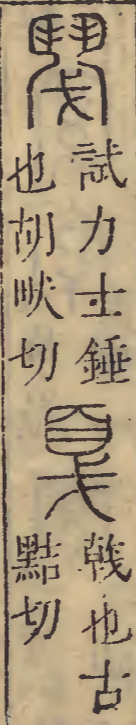 試力士錘
也胡畎切
戛
戟也古
黠切